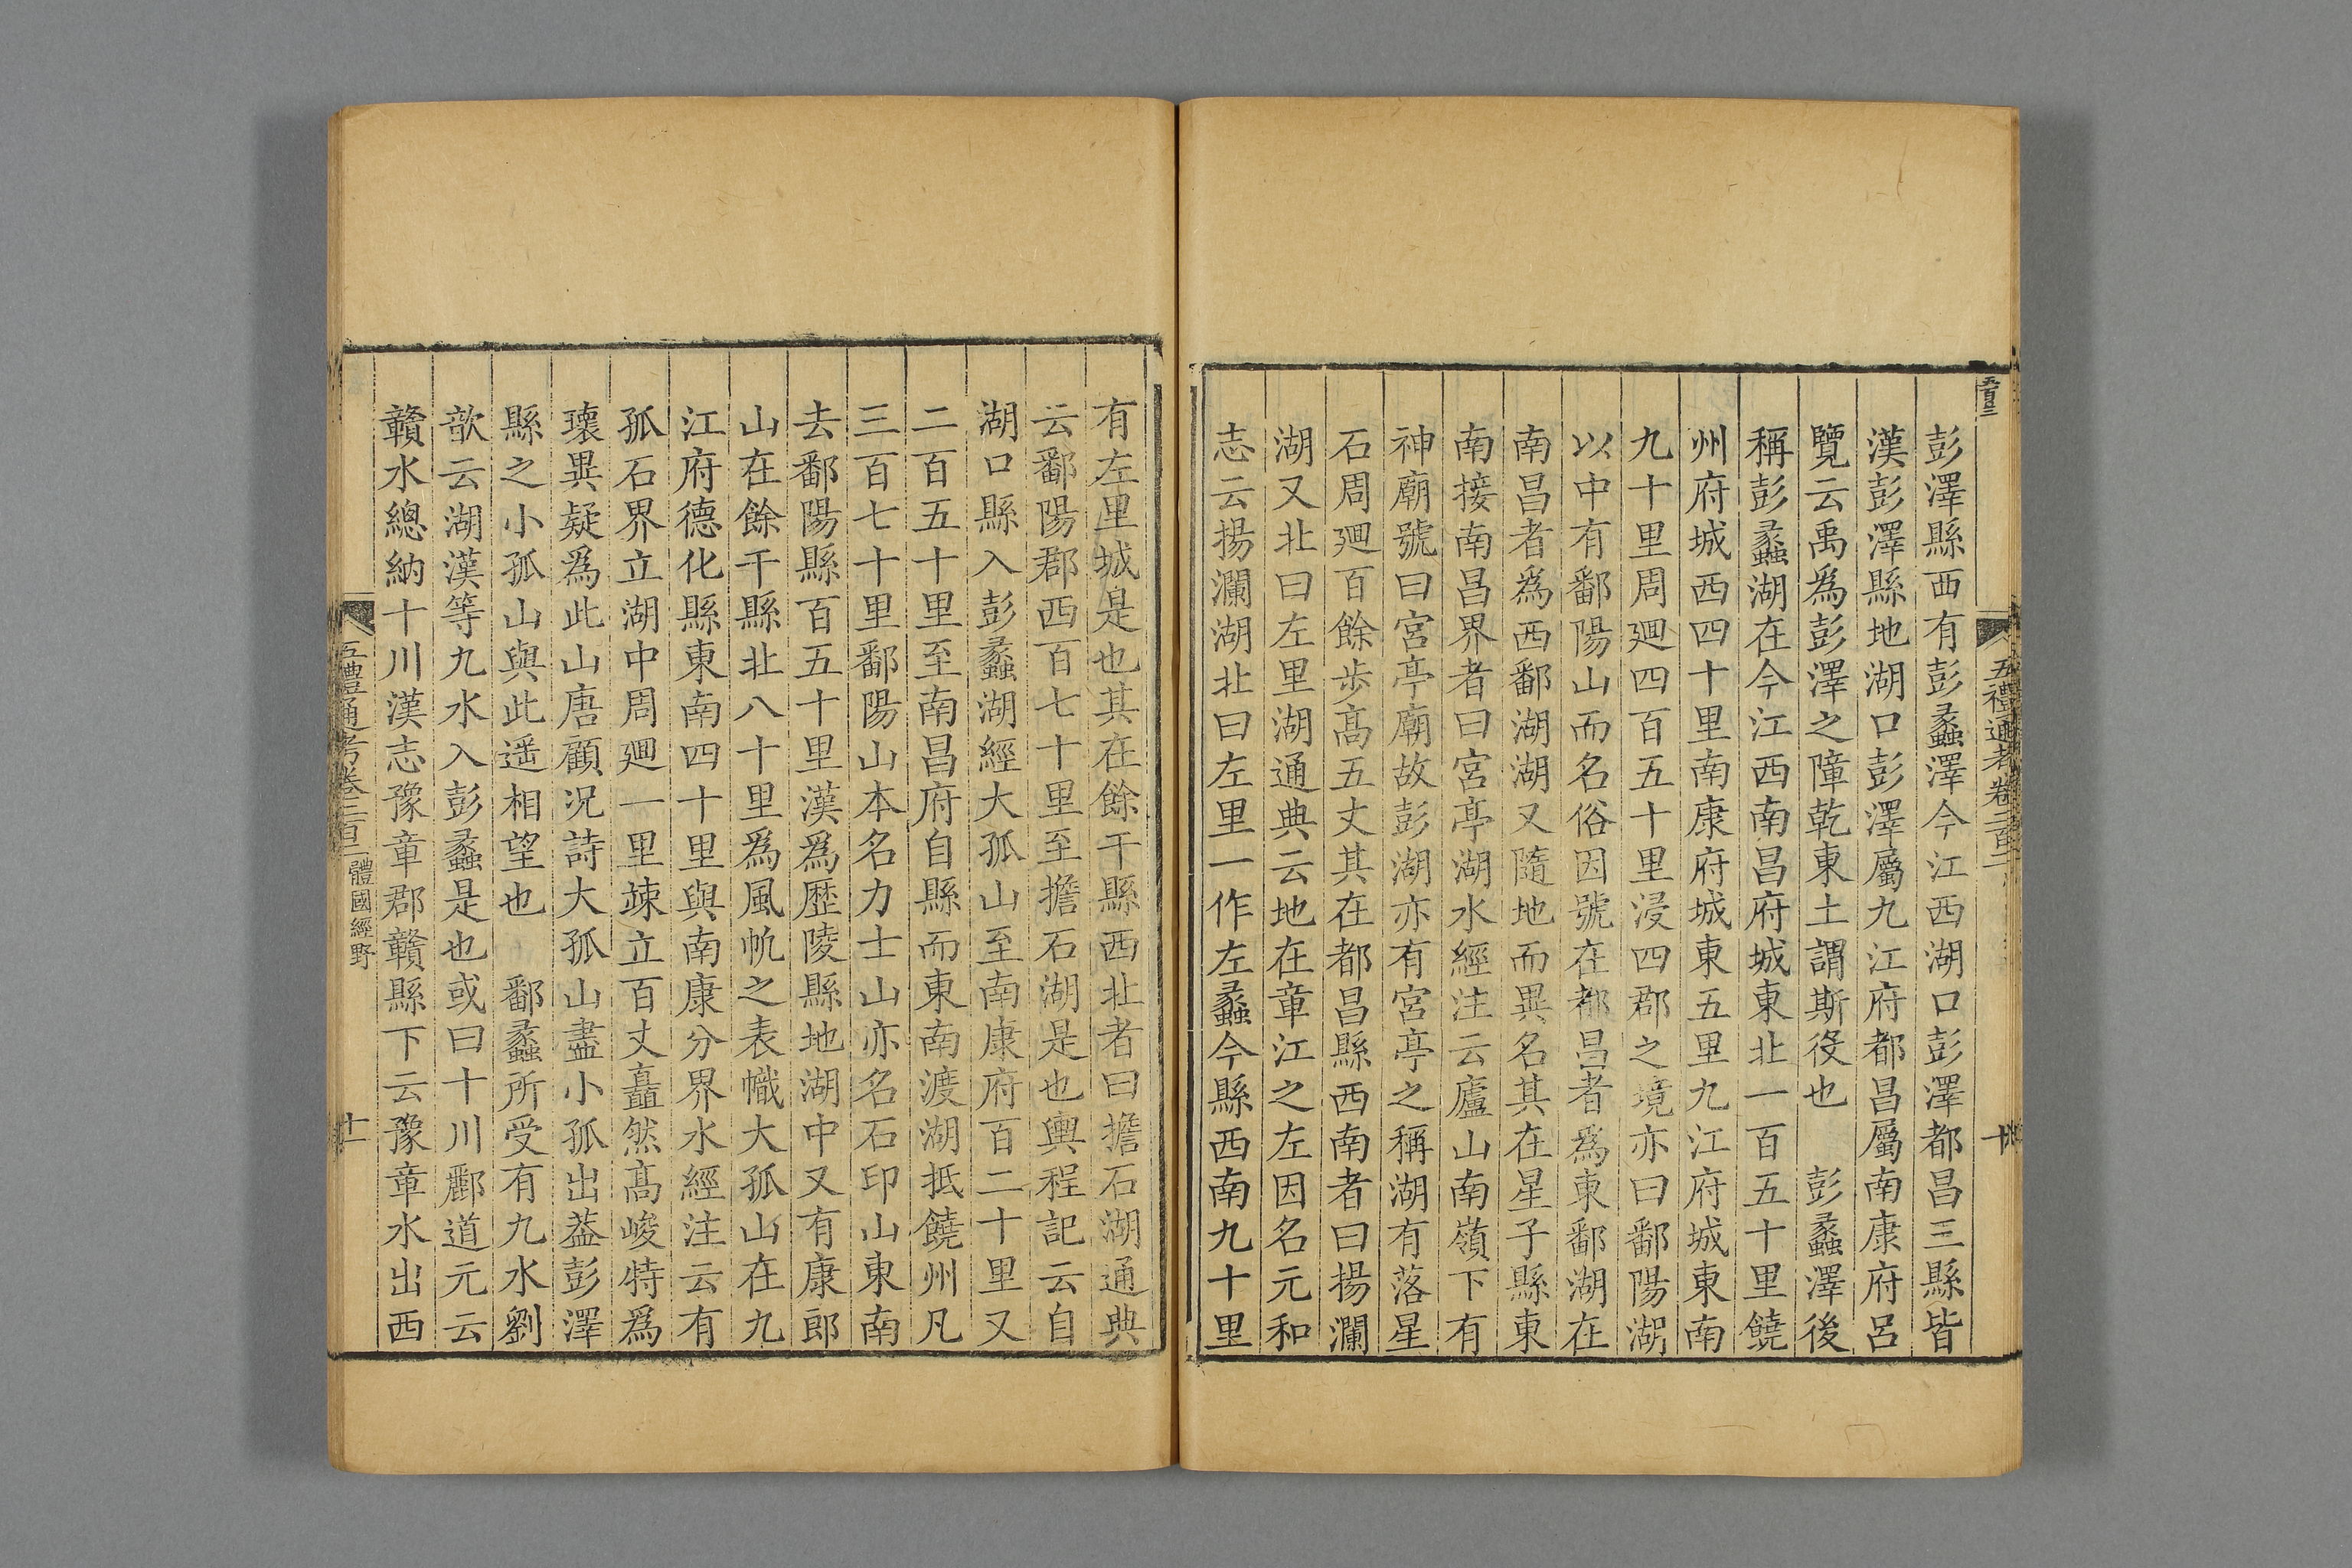 彭澤縣西有彭蠡澤今江西湖口彭澤都昌三縣皆
漢彭澤縣地湖口彭澤屬九江府都昌屬南康府呂
覽云禹爲彭澤之障乾東土謂斯役也　彭蠡澤後
稱彭蠡湖在今江西南昌府城東北一百五十里饒
州府城西四十里南康府城東五里九江府城東南
九十里周廽四百五十里浸四郡之境亦曰鄱陽湖
以中有鄱陽山而名俗因號在都昌者爲東鄱湖在
南昌者爲西鄱湖湖又隨地而異名其在星子縣東
南接南昌界者曰宮亭湖水經注云廬山南嶺下有
神廟號曰宮亭廟故彭湖亦有宮亭之稱湖有落星
石周廽百餘歩髙五丈其在都昌縣西南者曰揚瀾
湖又北曰左里湖通典云地在章江之左因名元和
志云揚瀾湖北曰左里一作左蠡今縣西南九十里
五禮通考卷二百二
十
有左里城是也其在餘干縣西北者曰擔石湖通典
云鄱陽郡西百七十里至擔石湖是也輿程記云自
湖口縣入彭蠡湖經大孤山至南康府百二十里又
二百五十里至南昌府自縣而東南渡湖抵饒州凡
三百七十里鄱陽山本名力士山亦名石印山東南
去鄱陽縣百五十里漢爲歴陵縣地湖中又有康郎
山在餘干縣北八十里爲風帆之表幟大孤山在九
江府德化縣東南四十里與南康分界水經注云有
孤石界立湖中周廽一里竦立百丈矗然髙峻特爲
瓌異疑爲此山唐顧况詩大孤山盡小孤出葢彭澤
縣之小孤山與此遥相望也　鄱蠡所受有九水劉
歆云湖漢等九水入彭蠡是也或曰十川酈道元云
贛水總納十川漢志豫章郡贛縣下云豫章水出西
五禮通考卷二百二
體國經野
十一